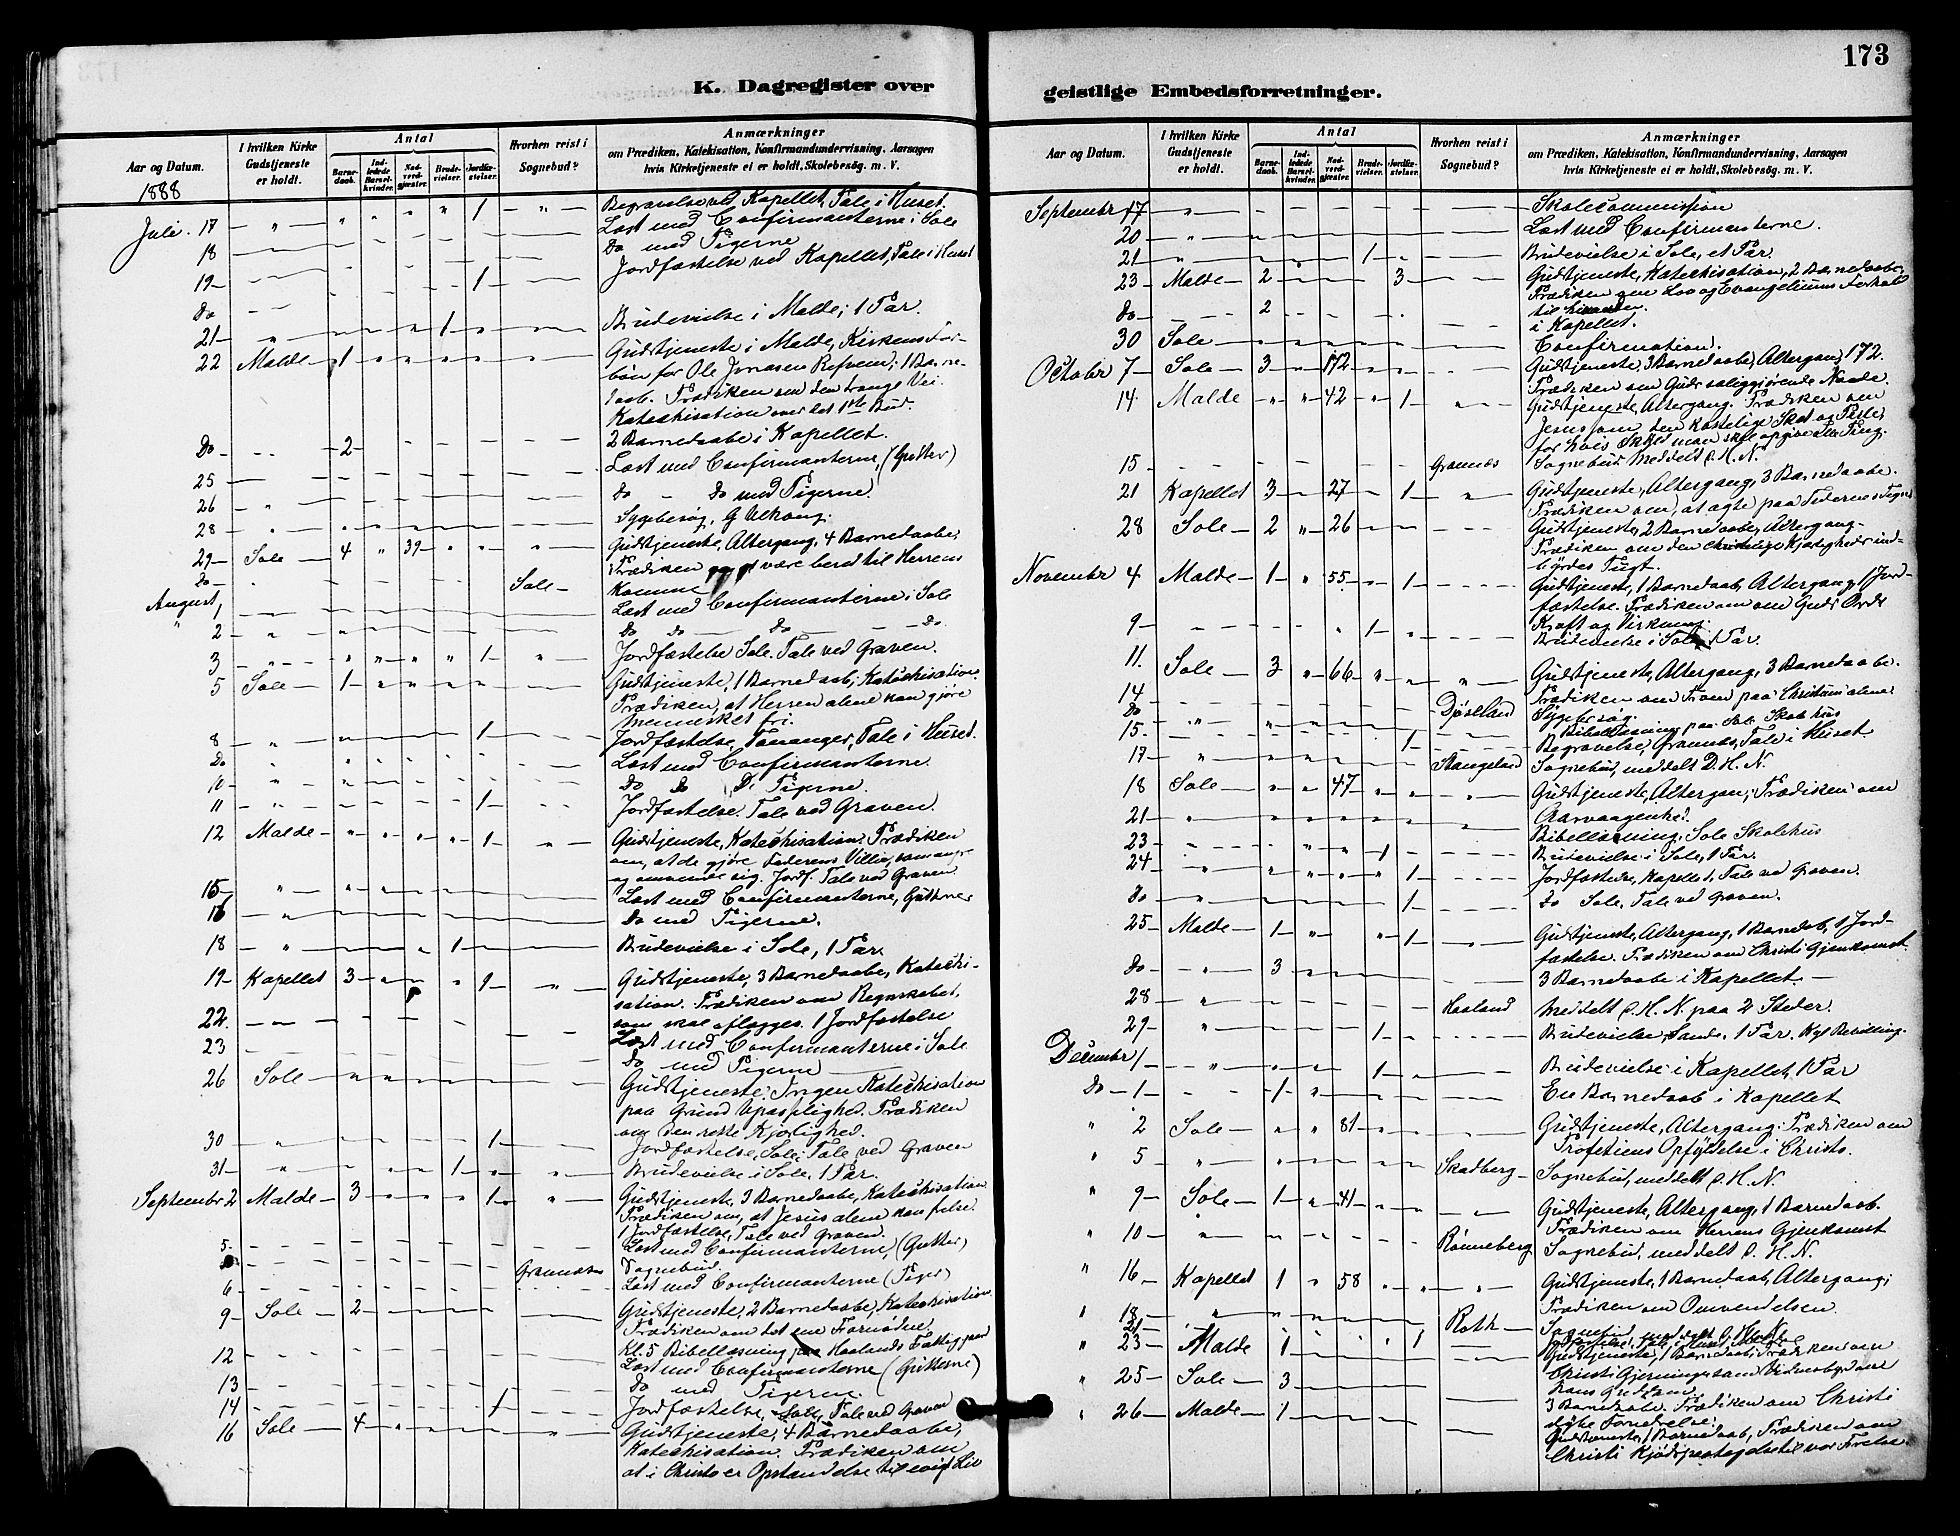 173
K. Dagregister over
geistlige Embedsforretninger.
Aar og Datum.
I hvilken Kirke Gudstjeneste er holdt.
Antal
Barnedaab.
Indledede Barselkvinder.
Nadverdgjæster.
Brudevielser.
Jordfæstelser.
Hvorhen reist i Sognebud?
Anmærkninger
om Prædiken, Katekisation, Konfirmandundervisning, Aarsagen
hvis Kirketjeneste ei er holdt, Skolebesög. m. V.
1888
Juli 17 1 Begravelse ved Kapellet, Tale i Huset.
Læst med Confirmanterne i Sole
18 Do med Pigerne
19 1 Jordfæstelse ved Kapellet, Tale i Huset
Do
21 1 Brudevielse i Malde, 1 Par.
22 Malde 1 Gudstjeneste i Malde, Kirkens For-
bøn for Ole Jonasen Refsem; 1 Barne-
daab. Prædiken om den trange Vei.
Katechisation over det 1ste Bud.
Do 2 2 Barnedaabe i Kapellet.
25 Læst med Confirmanterne, (Gutter)
26 Do Do med Pigerne
28 Sygebesøg,
29 Sole 4 39 Gudstjeneste, Altergang, 4 Barnedaabe,
Prædiken være bered til Herrens
Do Sole Komme
August 1 Læst med Confirmanterne i Sole
2 Do Do Do Do
3 1 Jordfæstelse Sole. Tale ved Graven.
5 Sole 1 Gudstjeneste, 1 Barnedaab, Katechisation.
Prædiken, at Herren alene kan gjøre
Mennesket fri.
8 1 Jordfæstelse Tananger, Tale i Huset.
Do Læst med Confirmanterne.
10 Do Do Do Pigerne.
11 1 Jordfæstelse. Tale ved Graven.
12 Malde 1 Gudstjeneste, Katechisation. Prædiken
om, at de gjøre Faderens Villie, som angre
og omvende sig. Jordf. Tale ved Graven
15 Læst med Confirmanterne, Gutterne
16 Do med Pigerne.
18 1 Brudevielse i Sole, 1 Par
19 Kapellet 3 1 Gudstjeneste, 3 Barnedaabe, Katechi-
sation. Prædiken om Regnskabet,
som skal aflægges. 1 Jordfæstelse
22 Læst med Confirmanterne i Sole
23 Do med Pigerne
26 Sole Gudstjeneste. Ingen Katechisation
paa Grund Upasselighed. Prædiken
om den rette Kjærlighed.
30 1 Jordfæstelse, Sole, Tale ved Graven
31 1 Brudevielse i Sole, 1 Par.
September 2 Malde 3 1 Gudstjeneste, 3 Barnedaabe, Katechisation
Prædiken om, at Jesus alene kan frelse.
1 Jordfæstelse, Tale ved Graven.
5 Læst med Confirmanterne, (Gutter)
Grannæs Sognebud.
6 Læst med Confirmanterne (Piger)
9 Sole 2 Gudstjeneste, 2 Barnedaabe, Katechisation.
Prædiken om det ene Fornødne.
Kl. 5 Bibellæsning paa Haalands Fattiggaard
12 Læst med Confirmanterne (Gutterne)
13 Do med Pigerne.
14 1 Jordfæstelse, Sole, Tale ved Graven
16 Sole 4 Gudstjeneste, 4 Barnedaabe,
Katechisation. Prædiken om
at i Christo er Opstandelse til evigt Liv
Aar og Datum.
I hvilken Kirke Gudstjeneste er holdt.
Antal
Barnedaab.
Indledede Barselkvinder.
Nadverdgjæster.
Brudevielser.
Jordfæstelser.
Hvorhen reist i Sognebud?
Anmærkninger
om Prædiken, Katekisation, Konfirmandundervisning, Aarsagen
hvis Kirketjeneste ei er holdt, Skolebesög. m. V.
September 17 Skolecommission
20 Læst med Confirmanterne.
21 1 Brudevielse i Sole, et Par.
23 Malde 2 3 Gudstjeneste, Katechisation, 2 Barnedaabe,
Prædiken om Lov og Evangeliums Forhold
til hinanden.
Do 2 i Kapellet.
30 Sole Confirmation.
October 7 Sole 3 172 Gudstjeneste, 3 Barnedaabe, Altergang 172.
Prædiken om Guds saliggjørende Naade.
14 Malde 42 1 Gudstjeneste, Altergang. Prædiken om
Jesus som den kostelige Skat og Perle,
for hvis Skyld man skal opgive alle Ting.
15 Grannæs Sognebud. Meddelt D. H. N.
21 Kapellet 3 27 1 Gudstjeneste, Altergang, 3 Barnedaabe.
Prædiken om, at agte paa Tidernes Tegn
28 Sole 2 26 Gudstjeneste, 2 Barnedaabe, Altergang.
Prædiken om den christelige Kjærligheds ind-
byrdes Tugt.
November 4 Malde 1 55 1 Gudstjeneste, 1 Barnedaab, Altergang, 1 Jord-
fæstelse. Prædiken om om Guds Ords
Kraft og Virkning.
9 1 Brudevielse i Sole, 1 Par.
11. Sole 3 66 Gudstjeneste, Altergang, 3 Barnedaabe.
Prædiken om Troen paa Christum alene
14 Djøseland Sygebesøg.
Do Bibellæsning paa Skolehus
15. 1 Begravelse, Grannæs, Tale i Huset
17 Stangeland Sognebud, meddelt D. H. N.
18 Sole 47 Gudstjeneste, Altergan, Prædiken om
Aarvaagenhed.
21 Bibellæsning, Sole Skolehus
23 1 Brudevielse i Sole, 1 Par.
24 1 Jordfæstelse, Kapellet, Tale ved Graven.
Do 1 Do Sole, Tale ved Graven.
25 Malde 1 1 Gudstjeneste, Altergang, 1 Barnedaab, 1 Jord-
fæstelse. Prædiken om Christi Gjenkomst
Do 3 3 Barnedaabe i Kapellet.
28 Haaland Meddelt D. H. N. paa 2 Steder.
29 1 Brudevielse, Sande, 1 Par. Kgl Bevilling.
December 1 1 Brudevielse i Kapellet, 1 Par
Do 1 1 En Barnedaab i Kapellet
" 2 Sole 81 Gudstjeneste, Altergang. Prædiken om
Profetiens Opfyldelse i Christo.
" 5 Skadberg Sognebud, meddelt D. H. N.
" 9 Sole 1 41 Gudstjeneste, Altergang, 1 Barnedaab.
Prædiken om Herrens Gjenkomst
" 10 Rønneberg Sognebud, meddelt D. H. N.
" 16 Kapellet 1 58 Gudstjeneste, 1 Barnedaab, Altergang,
Prædiken om Omvendelsen.
" 18 Roth Sognebud, meddelt D. H. N.
21 1
" 23 Malde 1 Gudstjeneste, 1 Barnedaab, Prædiken om
Christi Gjerninger som Vidnesbyrd om
hans Guddom.
" 25 Sole 3 3 Barnedaabe. Prædiken om Christi
dybe Fornedrelse.
" 26 Malde 1 Gudstjeneste, 1 Barnedaab, Prædiken om
Christi Kjødspaatagelse til vor Frelse.